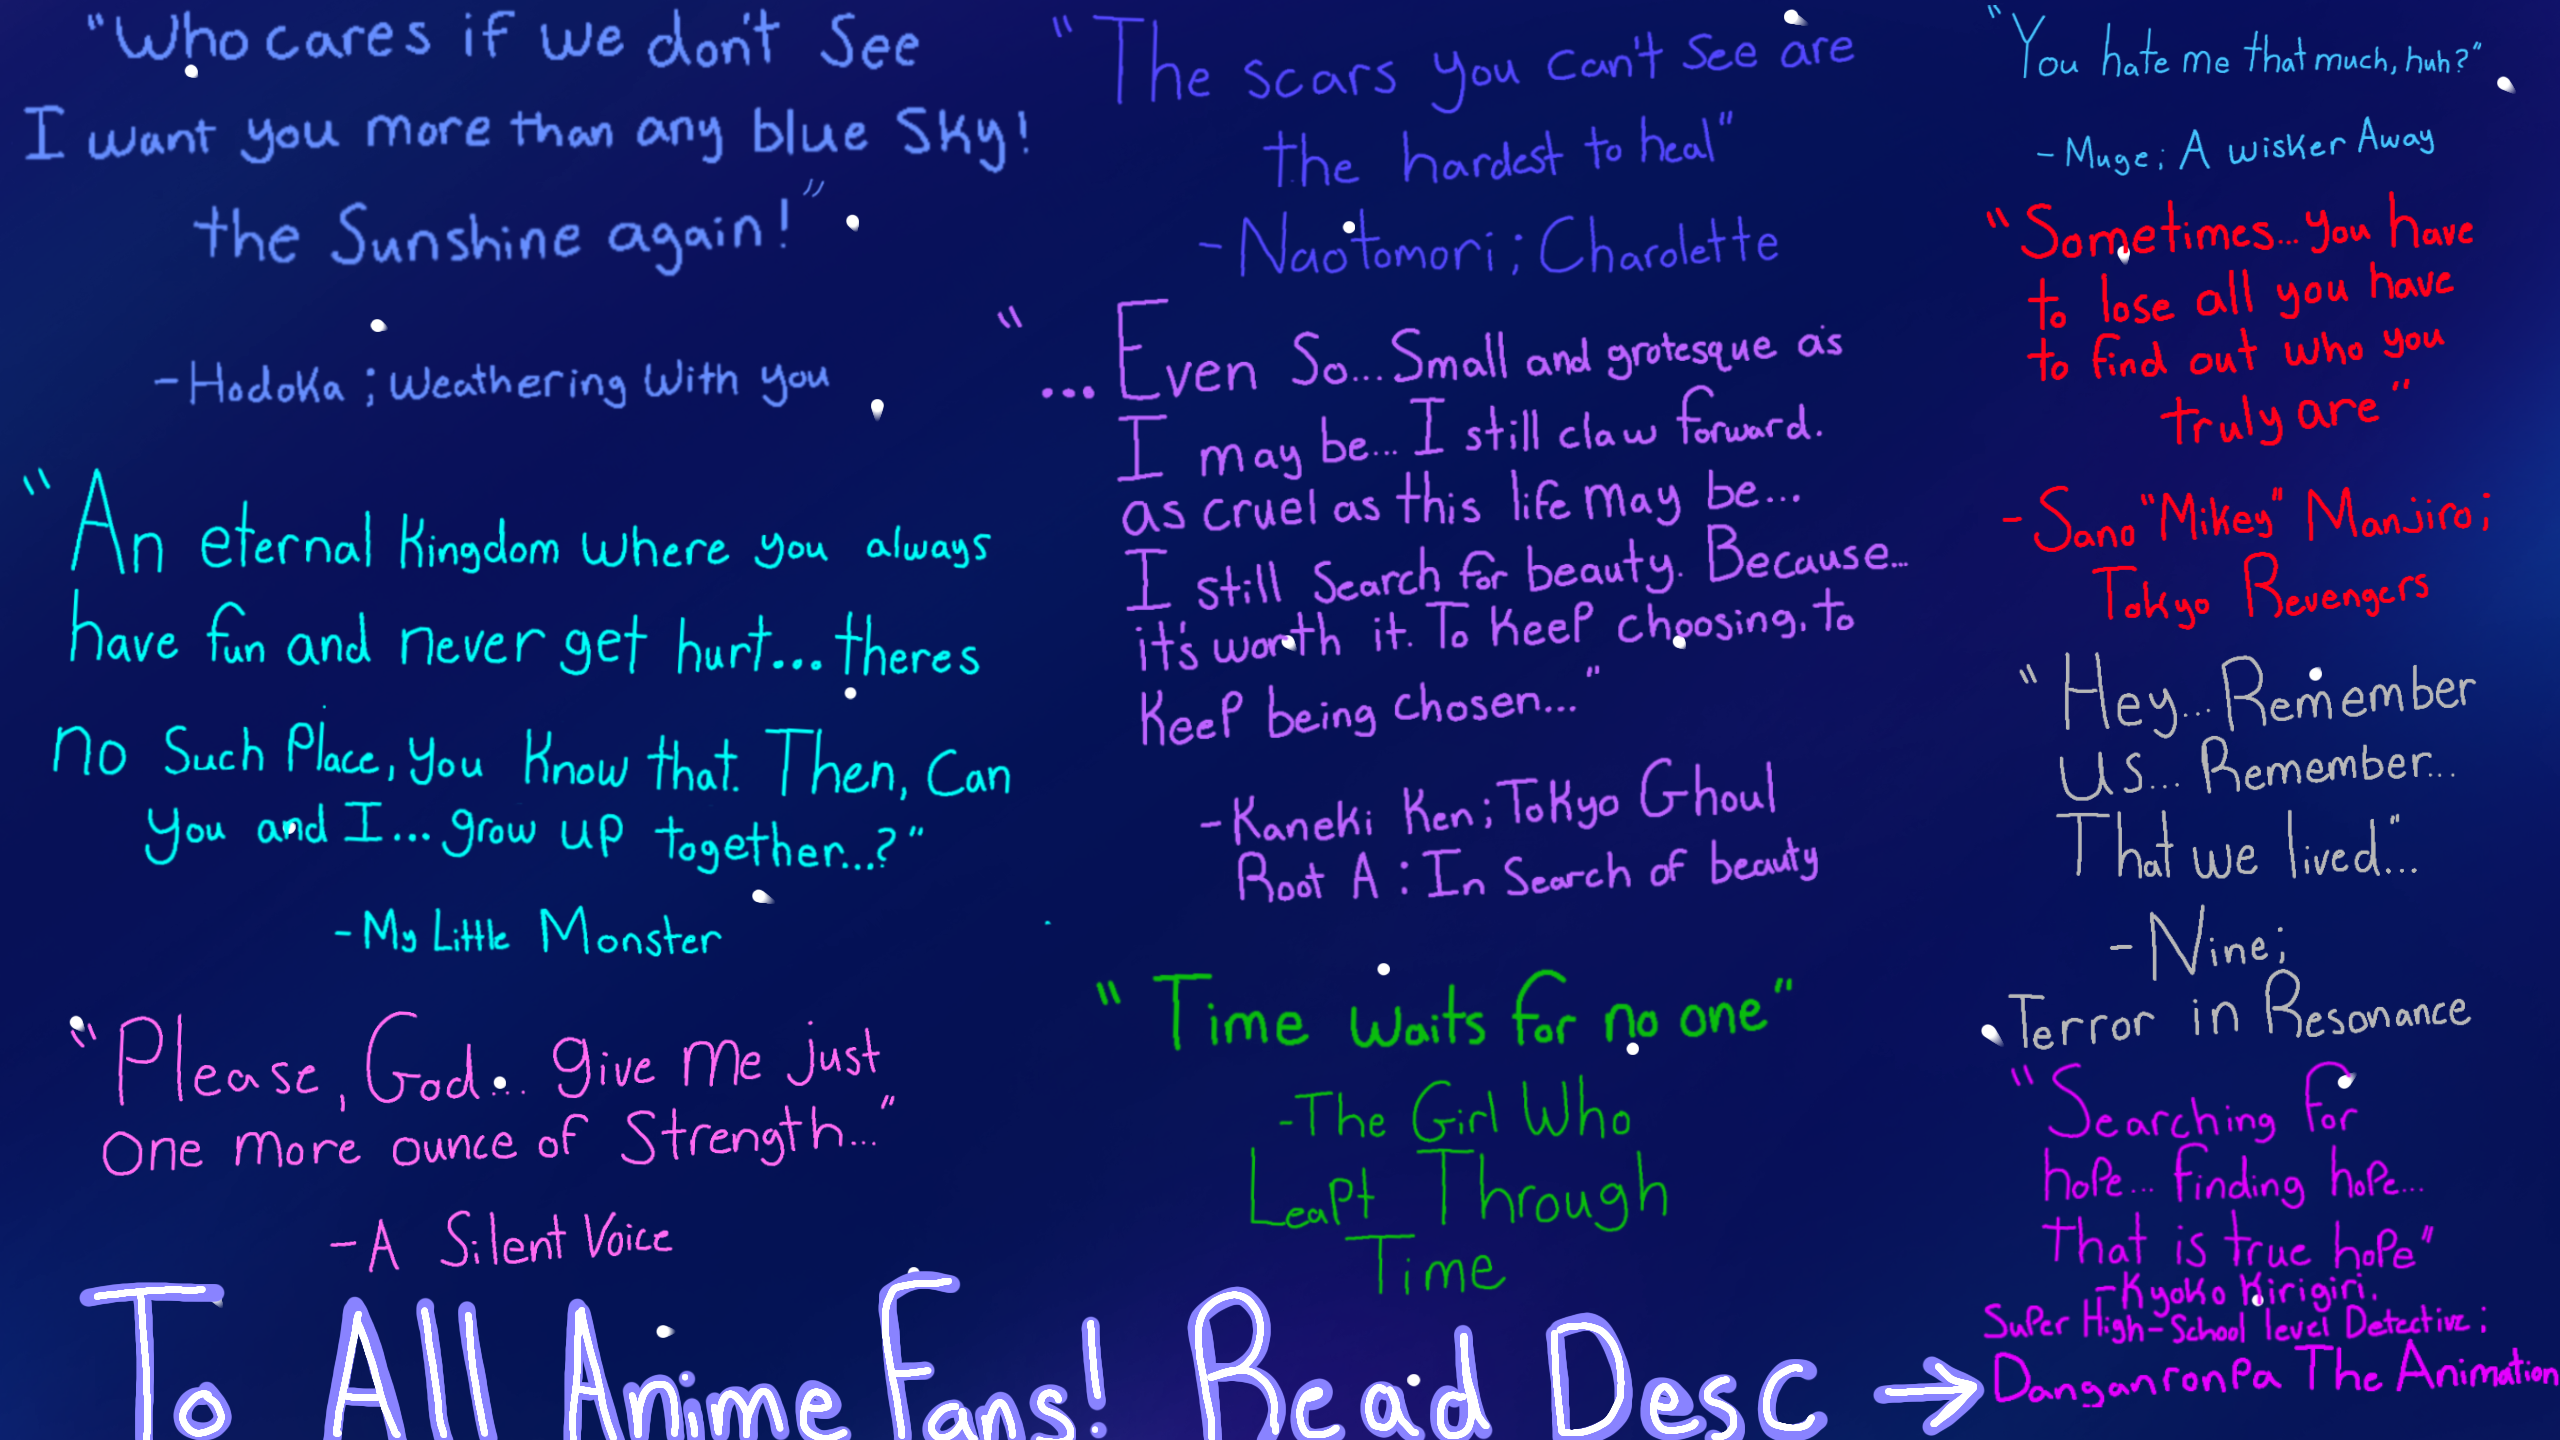 "Who cares if we don't See
I want you more than any blue Sky!
the Sunshine again!"
-Hodoka ; Weathering With you
"An eternal Kingdom where you always
have fun and never get hurt... theres
no Such Place, you Know that. Then, Can
you and I... grow up together...?"
-My Little Monster
"Please, God... give me just
one more ounce of Strength..."
-A Silent Voice
"The scars you can't see are
the hardest to heal"
-Naotomori ; Charolette
"...Even So... Small and grotesque as
I may be... I still claw forward.
as cruel as this life may be...
I still Search for beauty. Because...
it's worth it. To Keep choosing. to
Keep being chosen..."
-Kaneki Ken ; Tokyo Ghoul
Root A : In Search of beauty
"Time waits for no one"
-The Girl Who
Leapt Through
Time
"You hate me that much, huh?"
-Muge ; A wisker Away
"Sometimes... you have
to lose all you have
to find out who you
truly are"
-Sano "Mikey" Manjiro ;
Tokyo Revengers
"Hey... Remember
us... Remember...
That we lived..."
-Nine ;
Terror in Resonance
"Searching for
hope... finding hope...
that is true hope"
-Kyoko Kirigiri.
Super High-School level Detective ;
Danganronpa The Animation
To All Anime Fans! Read Desc →